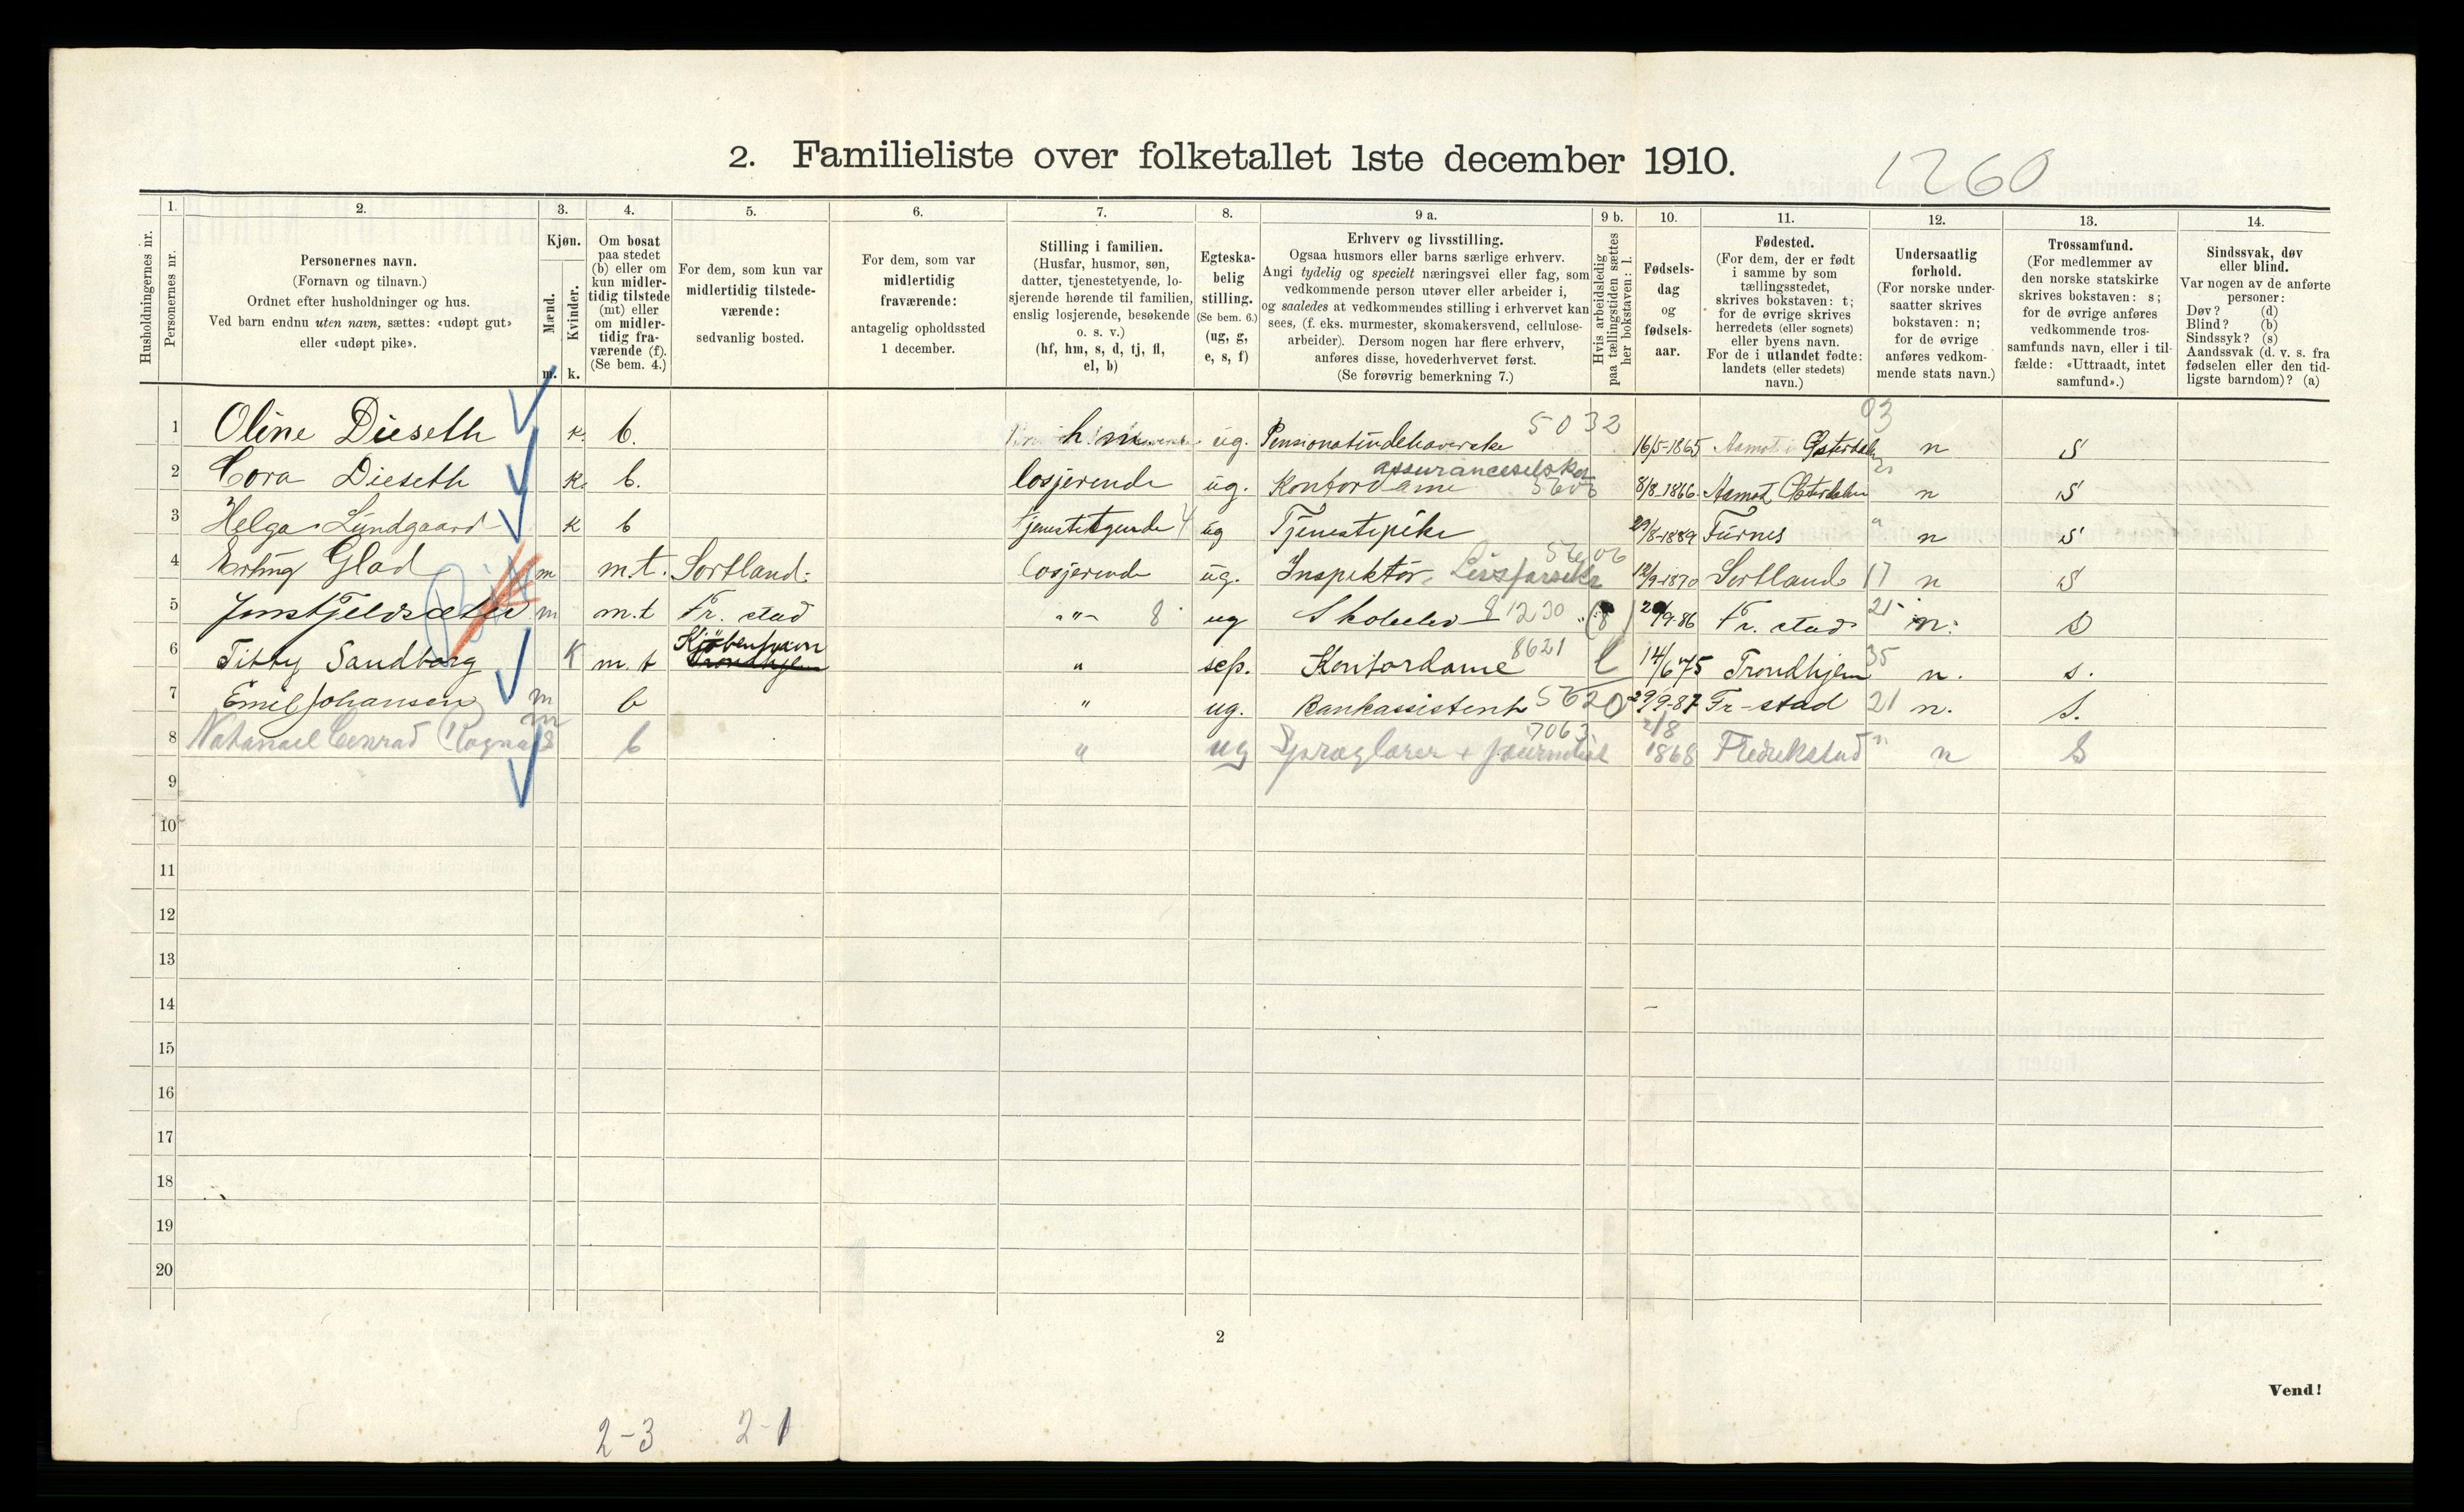 2. Familieliste over folketallet 1ste december 1910.
1260
Husholdningernes nr.
1.
Personernes nr.
2.
Personernes navn.
(Fornavn og tilnavn.)
Ordnet efter husholdninger og hus.
Ved barn endnu uten navn, sættes: «udøpt gut»
eller «udøpt pike».
3.
Kjøn.
Mænd.
Kvinder.
m. k.
4.
Om bosat
paa stedet
(b) eller om
kun midler-
tidig tilstede
(mt) eller
om midler-
tidig fra-
værende (f).
(Se bem. 4.)
5.
For dem, som kun var
midlertidig tilstede-
værende:
sedvanlig bosted.
6.
For dem, som var
midlertidig
fraværende:
antagelig opholdssted
1 december.
7.
Stilling i familien.
(Husfar, husmor, søn,
datter, tjenestetyende, lo-
sjerende hørende til familien,
enslig losjerende, besøkende
o. s. v.)
(hf, hm, s, d, tj, fl,
el, b)
8.
Egteska-
belig
stilling.
(Se bem. 6.)
(ug, g,
e, s, f)
9 a.
Erhverv og livsstilling.
Ogsaa husmors eller barns særlige erhverv.
Angi tydelig og specielt næringsvei eller fag, som
vedkommende person utøver eller arbeider i,
og saaledes at vedkommendes stilling i erhvervet kan
sees, (f. eks. murmester, skomakersvend, cellulose-
arbeider). Dersom nogen har flere erhverv,
anføres disse, hovederhvervet først.
(Se forøvrig bemerkning 7.)
9 b.
Hvis arbeidsledig
paa tællingstiden sættes
her bokstaven: l.
10.
Fødsels-
dag
og
fødsels-
aar.
11.
Fødested.
(For dem, der er født
i samme by som
tællingsstedet,
skrives bokstaven: t;
for de øvrige skrives
herredets (eller sognets)
eller byens navn.
For de i utlandet fødte:
landets (eller stedets)
navn.)
12.
Undersaatlig
forhold.
(For norske under-
saatter skrives
bokstaven: n;
for de øvrige
anføres vedkom-
mende stats navn.)
13.
Trossamfund.
(For medlemmer av
den norske statskirke
skrives bokstaven: s;
for de øvrige anføres
vedkommende tros-
samfunds navn, eller i til-
fælde: «Uttraadt, intet
samfund».)
14.
Sindssvak, døv
eller blind.
Var nogen av de anførte
personer:
Døv? (d)
Blind? (b)
Sindssyk? (s)
Aandssvak (d. v. s. fra
fødselen eller den tid-
ligste barndom)? (a)
1 Oline Dieseth k. b. hm ug. Pensionatindehaverske 5032 16/5-1865 Aamot i Østerdalen 03 n S
2 Cora Dieseth k. b. losjerende ug. Kontordame assuranceselskap 8/8-1866. Aamot Østerdalen n S
3 Helga Lundgaard k b tjenestetyende 4 ug Tjenestepike 29/8-1889 Furnes " n S
4 Erling Glad m m.t. Sortland. losjerende ug. Inspektør. Livsforsikr 12/9-1870 Sortland 17 n S
5 Jens Fjeldsæter m m.t Fr. stad -"- 8 ug Skoleelev 81230 (8) 20/9-86 Fr. stad 21 n. S
6 Titty Sandborg K m.t Kjøbenhavn Trondhjem " sep. Kontordame 8621 l 14/6 75 Trondhjem 35 n. s.
7 Emil Johansen m b " ug. Bankassistent 5620 29/9-87 Fr-stad 21 n. S.
8 Nathanael Conrad m b " ug Sproglærer + journalist 7063 2/8 1868 Fredrikstad " n S
9
10
11
12
13
14
15
16
17
18
19
20
2
Vend!
2-3 2-1